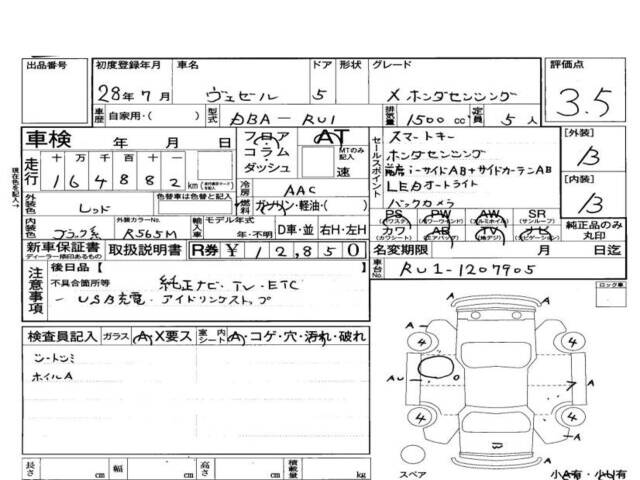 出品番号 初度登録年月 車名 ドア 形状 グレード 評価点
28年7月 ヴェゼル 5 X ホンダセンシング 3.5
車歴 自家用・( ) 型式 DBA-RU1 排気量 1500cc 定員 5人
車検 年 月 日 フロア コラム・ダッシュ AT MTのみ記入 速
セールスポイント
スマートキー
ホンダセンシング
前席i-サイドAB+サイドカーテンAB
LEDオートライト
バックカメラ
[外装] B
[内装] B
現在色を記入→
走行 十万千百十 164882 km
冷房 AAC
外装色 レッド 色替車は色替と記入 燃料 ガソリン・軽油・( )
内装色 ブラック系 外装カラーNo. R565M 輸入車 モデル年式 年・不明 D車・並 右H・左H
PS PW AW SR
(パワステ) (パワーウインド) (アルミホイル) (サンルーフ)
カワ AB TV ナビ
(カワシート) (エアバッグ) (地デジ) (ナビゲーション)
純正品のみ丸印
新車保証書 取扱説明書 R券 ¥12,850
ディーラー捺印あるもの
名変期限 月 日迄
車台No. RU1-1207905
注意事項
後日品[ ]
不具合箇所等 純正ナビ・TV・ETC
USB充電・アイドリングストップ
ロック車
検査員記入 ガラス A・X要ス 室内シート A・コゲ・穴・汚れ・破れ
シートシミ
ホイルA
A A
4 4
AU A
4 4
A A
スペア 小A有・小U有
長さ cm 幅 cm 高さ cm 積載量 kg